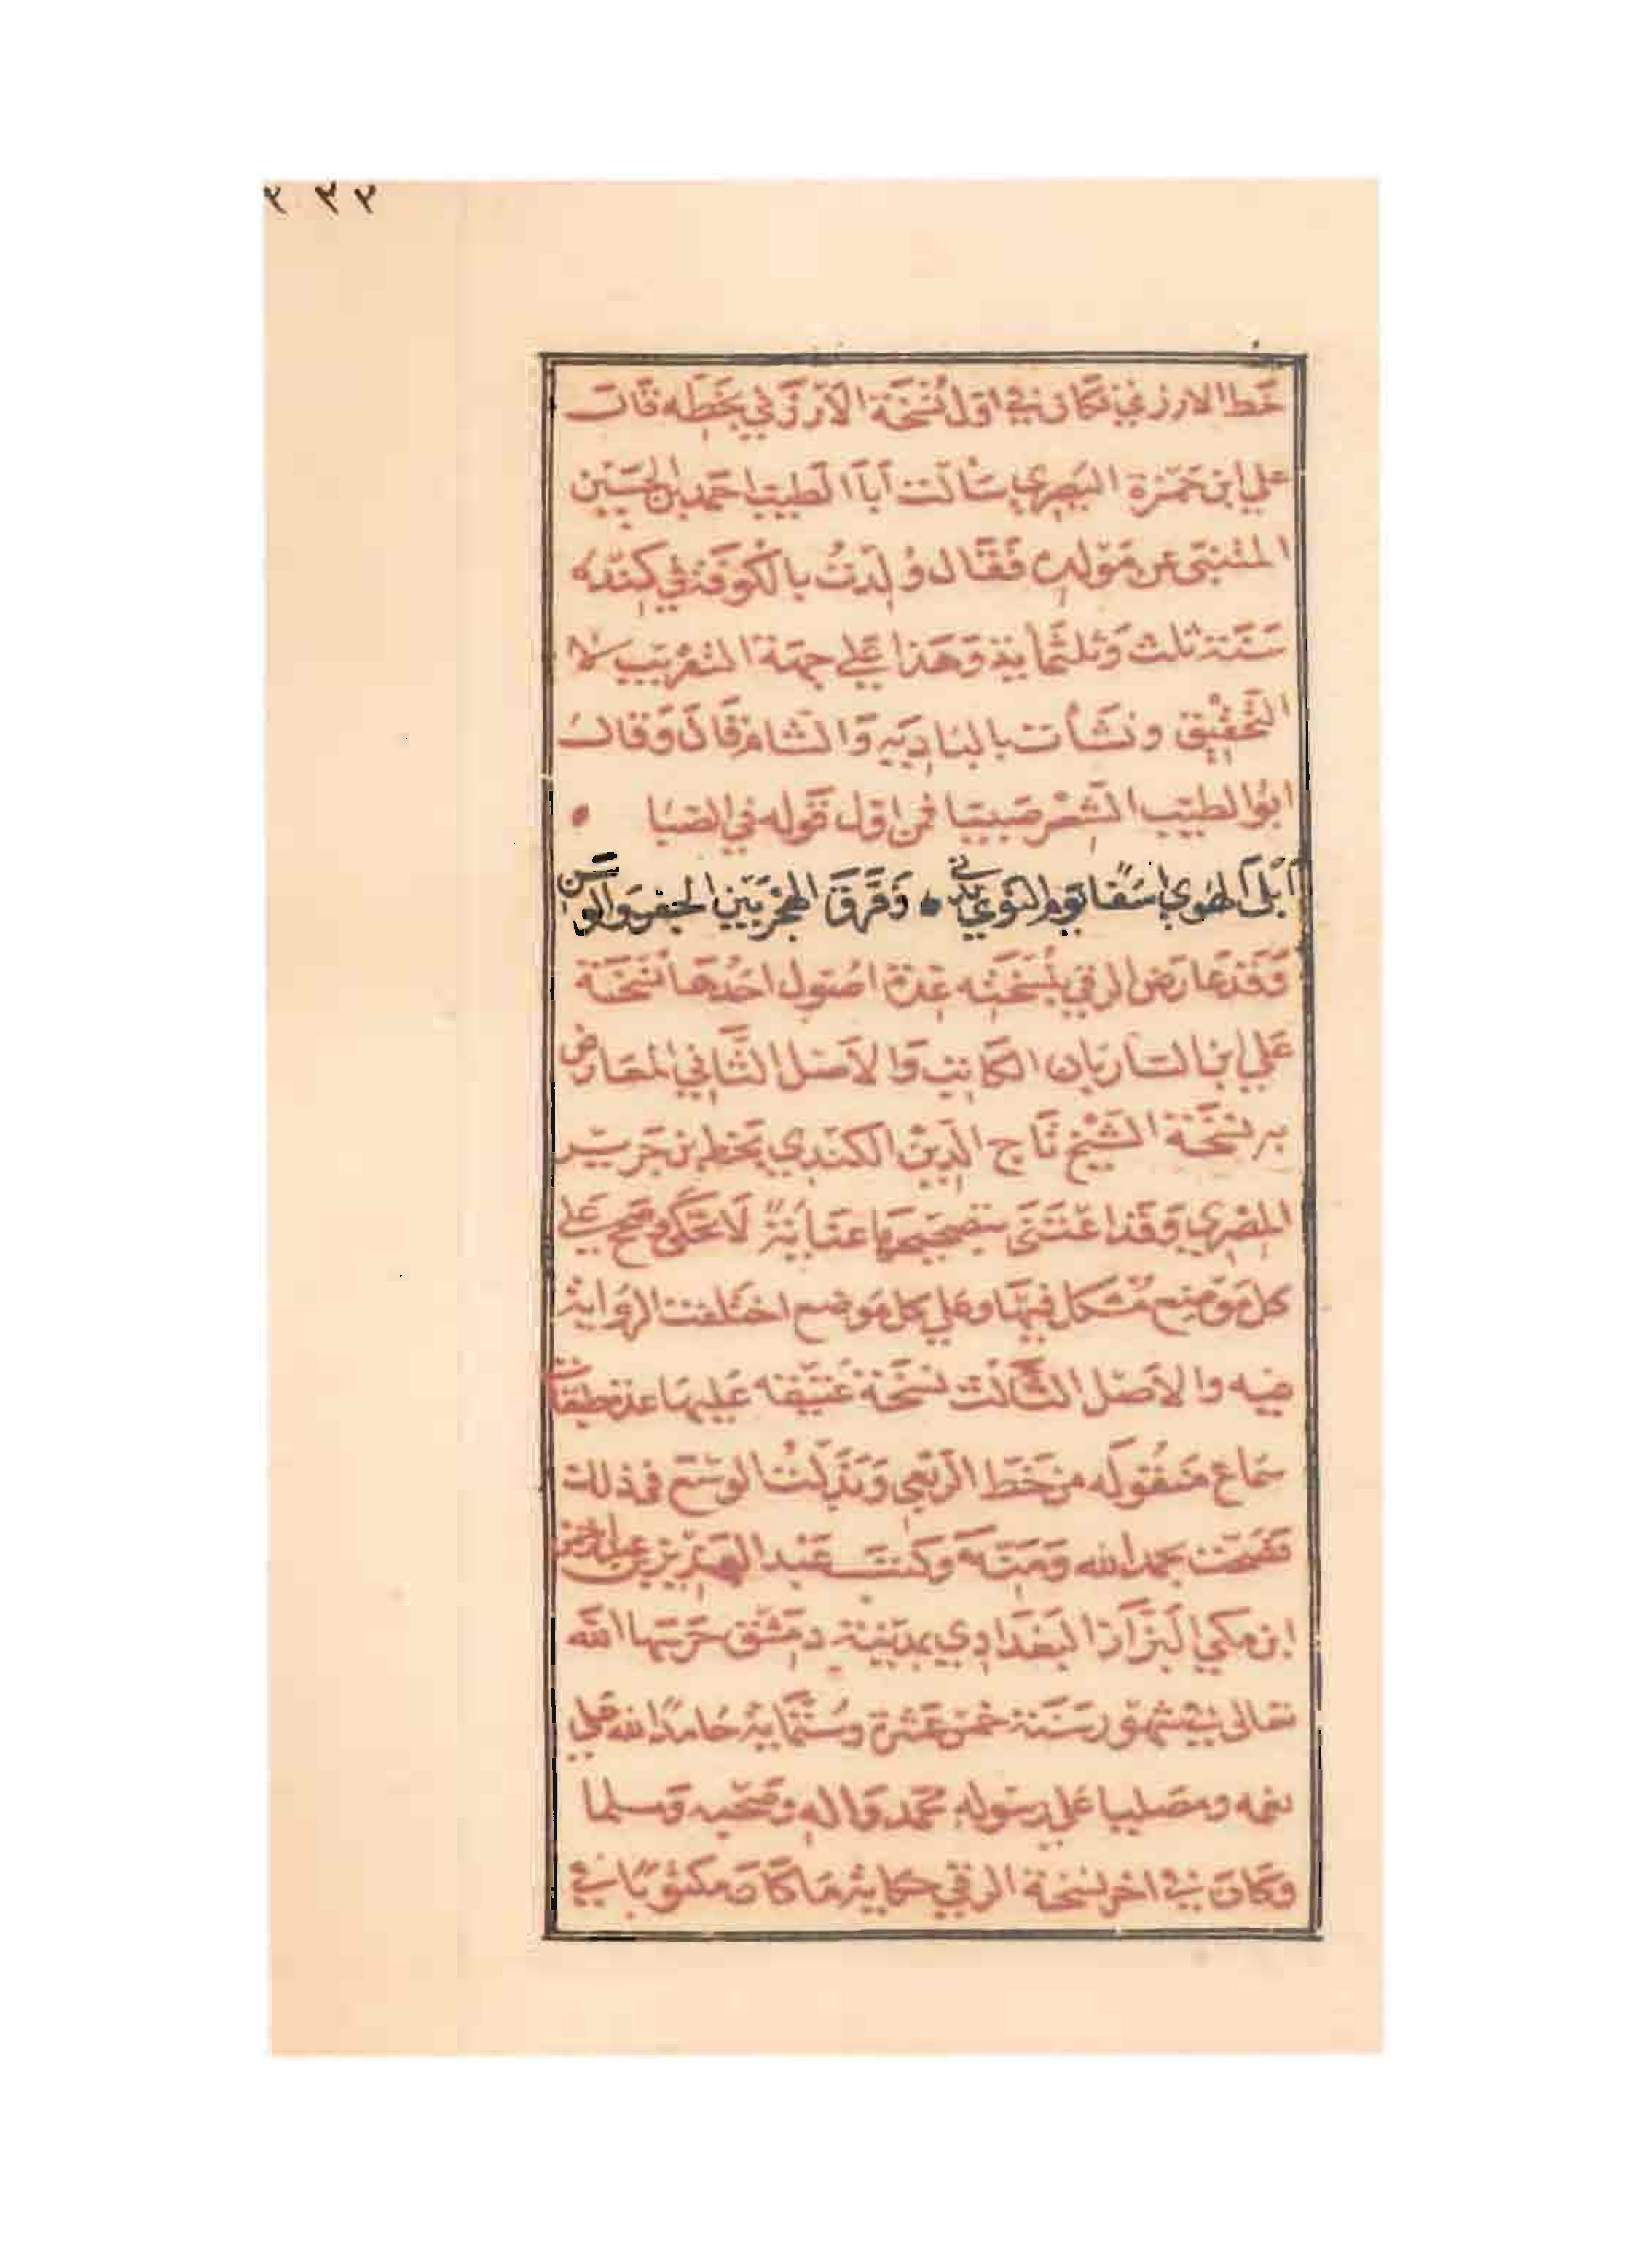 ٢٣٢
خَط الارزني فكان في اول نُسْخَة الأرْزَني بخَطِه قَالَ
علي ابن حَمْزة البَصري سَألت أبَا الَطيب احمد بن الحسَين
المتنبّى عن مَوْلده فَقَال وُلِدتُ بالكُوفَة في كِنْدَه
سَنَة ثلث وَثلثمايَة وَهَذا عَلى جِهَة التقريَب لا
التَحْقيْق ونشَأت بالبَاديَه وَالشام قَالَ وَقالَ
ابُوا لطيّب الشعْر صَبيّا فمن اوّل قَوْله في الصّبَا
أبْلَى الهَوي اسَفًا يَوم النَوي بَدني وَفَرَّقَ الهَجْر بَيْن الجفن وَالوسَن
وَقَد عَارَض الرقي بنُسْخَتِه عدة اصُول احَدها نسْخَة
عَلي ابن الساربَان الكاتب وَالأصْل الثَاني المعَارض
به نسْخَة الشَيْخ تَاج الدِين الكندي بخط ابن جَرير
المصْري وَقَد اعْتَنَى بتصْحِيحهَا عنَايَةً لَا تحْكَى وصَح عَلى
كل مَوْضِع مُشكل فيهَا وعَلي كل مَوضع اختَلفت الروَاية
فيه والأصْل الثَالث نسْخَة عَتيقَه عَليهَا عدة طبقَات
سَماع مَنْقُولَه من خَط الرَبَعي وَبَذَلتُ الوسْع في ذلك
فصَحت بحمد الله وَمَنّه وَكتَبَ عَبْد العَزيز بن
ابن مَكي البَزَّاز البَغدَادي بمدِينَة دمَشْق حَرسَهَا الله
تعَالى في شهُور سَنَة خمسَ عَشرة وسُتّمَايَة حَامدًا لله عَلي
نعمه ومصَليا عَلى رسَوله محمّد وَاله وصَحْبه وَمسَلما
وَكَانَ في اخر نسْخَة الرقي حكَاية مَا كَانَ مكتُوبًا في